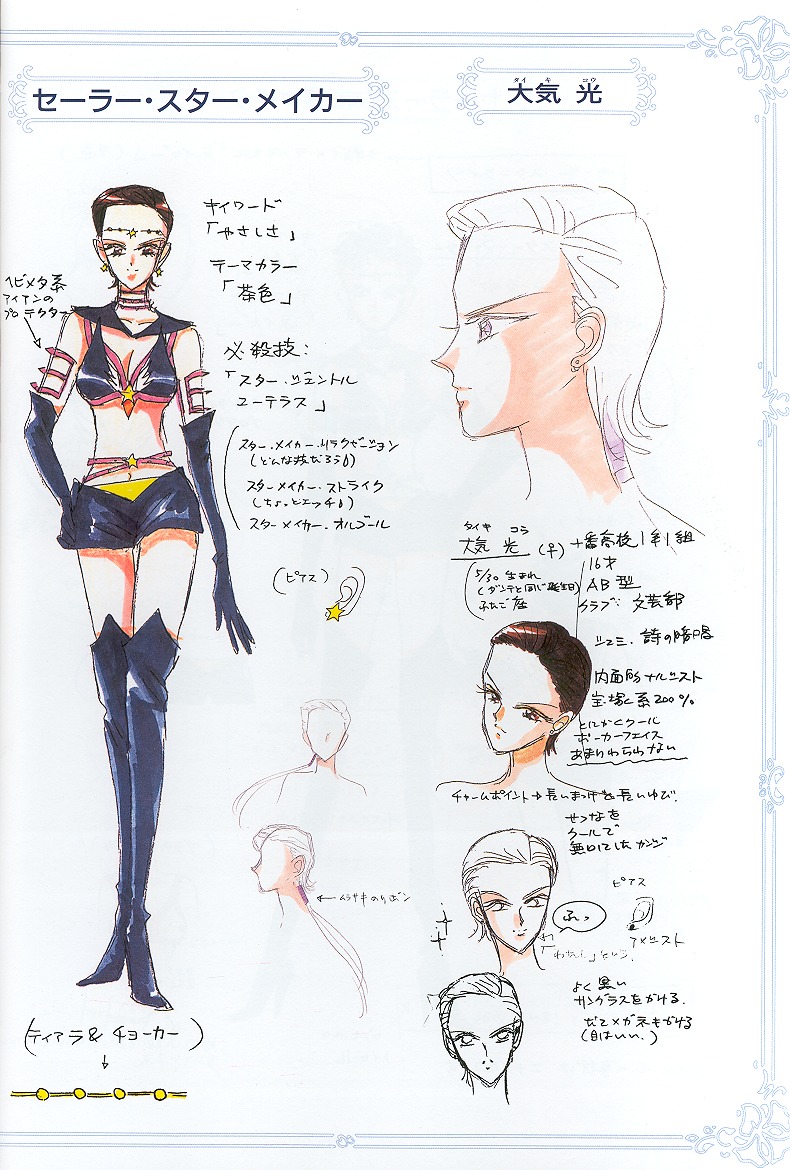 セーラー・スター・メイカー
タイ キ コウ
大気 光
キイワード
「やさしさ」
テーマカラー
「茶色」
ヘビメタ系
アイアンの
プロテクター
必殺技:
「スター・ジェントル
ユーテラス」
スター・メイカー・リラクゼーション
(どんな技だろう
スターメイカー・ストライク
(ちょっとエッチ
スターメイカー・オルゴール
(ピアス)
タイキ コウ
大気 光 (♀)
5/30 生まれ
(ダンテと同じ誕生日)
ふたご座
十番高校1年1組
16才
AB型
クラブ: 文芸部
シュミ. 詩の暗唱
内面的ナルシスト
宝塚系200%
とにかくクール
ポーカーフェイス
あまりわらわない
チャームポイント→長いまつげ&長いゆび.
せつなを
クールで
無口にしたカンジ
←ムラサキのリボン
ふっ
「わたし」という.
ピアス
アメジスト
よく黒い
サングラスをかける.
だてメガネもかける
(目はいい.)
(ティアラ& チョーカー)
↓